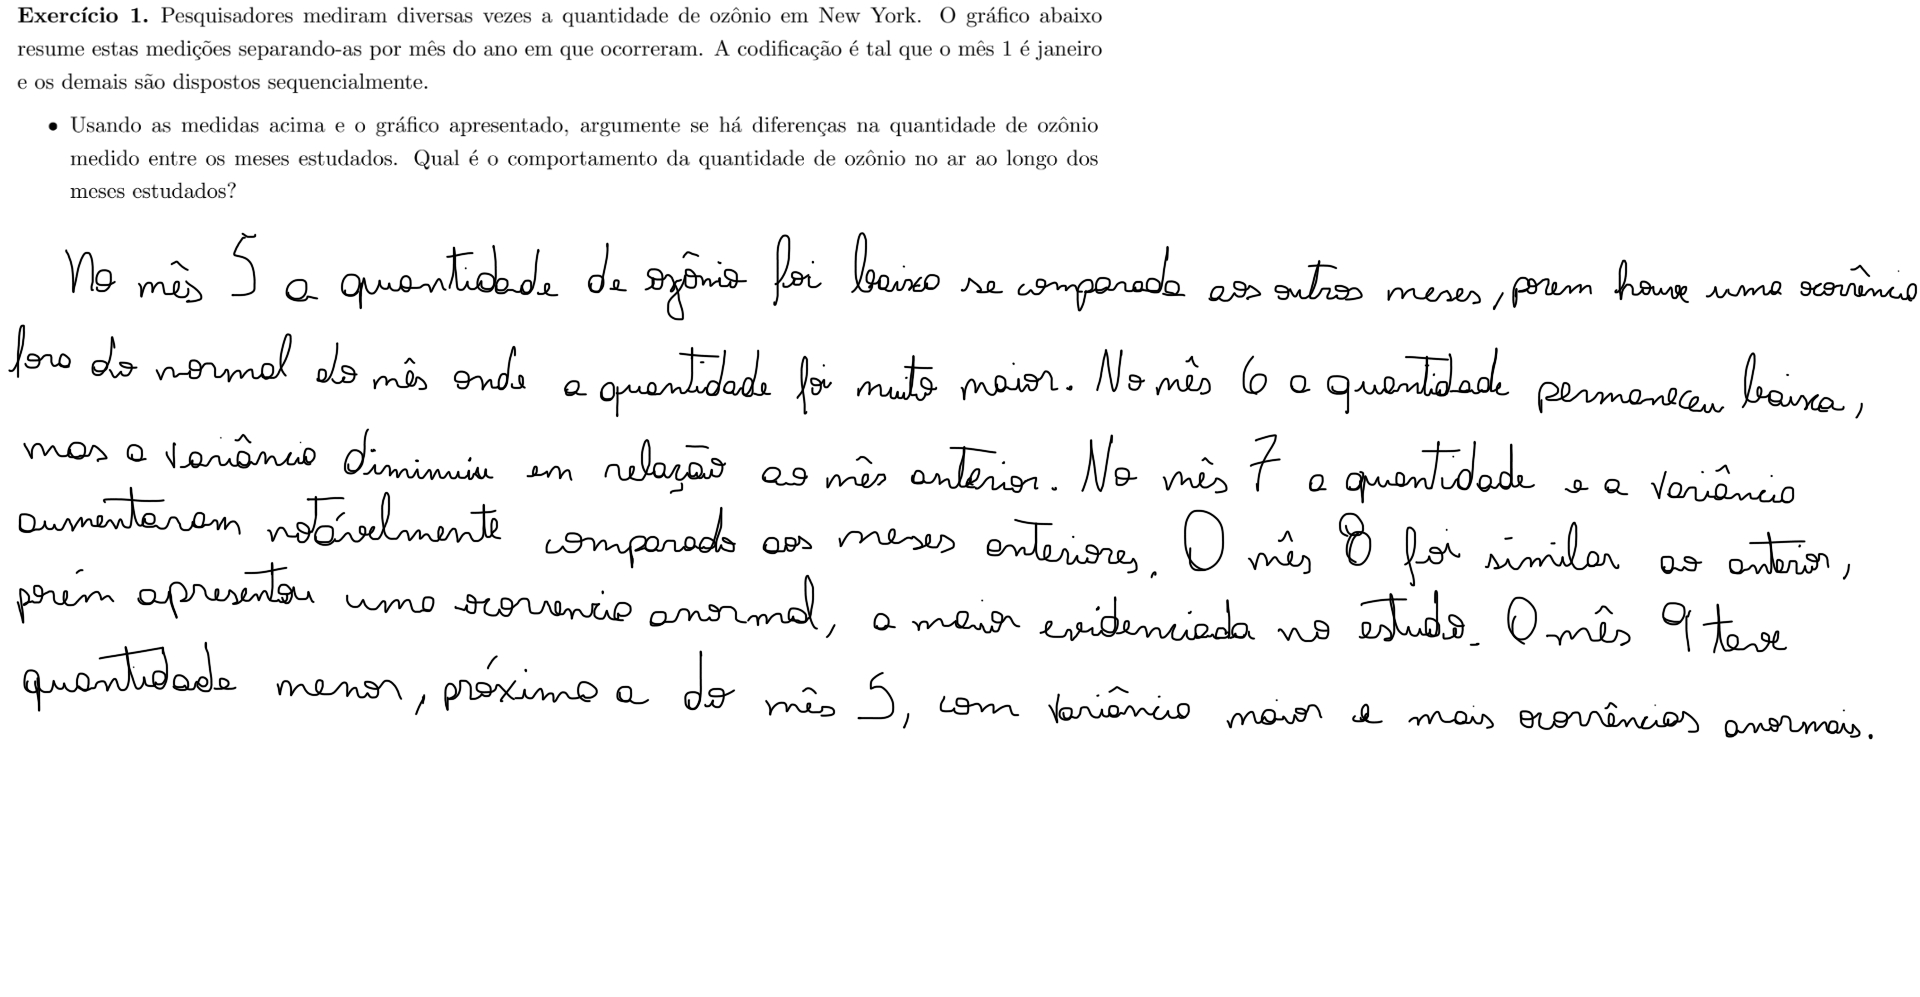 Exercício 1. Pesquisadores mediram diversas vezes a quantidade de ozônio em New York. O gráfico abaixo
resume estas medições separando-as por mês do ano em que ocorreram. A codificação é tal que o mês 1 é janeiro
e os demais são dispostos sequencialmente.
• Usando as medidas acima e o gráfico apresentado, argumente se há diferenças na quantidade de ozônio
medido entre os meses estudados. Qual é o comportamento da quantidade de ozônio no ar ao longo dos
meses estudados?
No mês 5 a quantidade de ozônio foi baixo se comparada aos outros meses, porem houve uma ocorrência
fora do normal do mês onde a quantidade foi muito maior. No mês 6 a quantidade permaneceu baixa,
mas a variância diminuiu em relação ao mês anterior. No mês 7 a quantidade e a variância
aumentaram notávelmente comparado aos meses anteriores. O mês 8 foi similar ao anterior,
porém apresentou uma ocorrencia anormal, a maior evidenciada no estudo. O mês 9 teve
quantidade menor, próxima a do mês 5, com variância maior e mais ocorrências anormais.